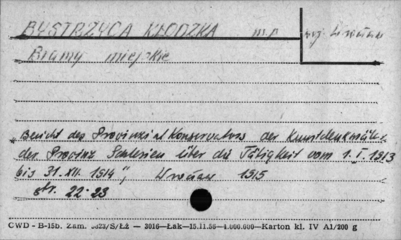 BYSTRZYCA KŁODZKA m. woj. Wrocław
Bramy miejskie
"Bericht des Provinzial Konservators der Kunstdenkmäler
der Provinz Schlesien über die Tätigkeit vom 1. I. 1913
bis 31. XII. 1914", Wrocław 1915
str. 22-23
CWD - B-15b. Zam. /S/Łż — 3016—Łak—15.11.56—4.000.000—Karton kl. IV A1/200 g